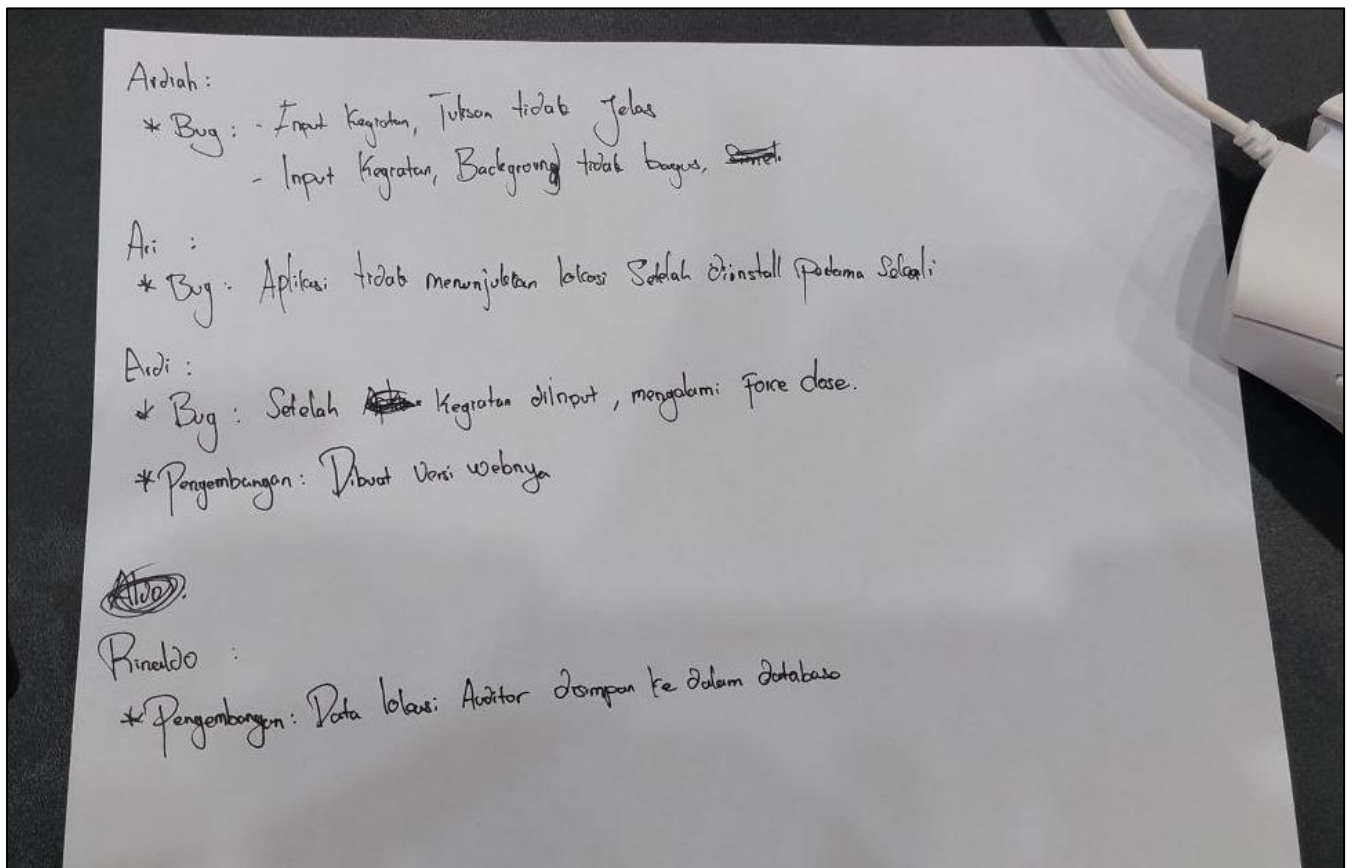 Ardiah :
* Bug : - Input Kegiatan, Tulisan tidak Jelas
- Input Kegiatan, Background tidak bagus,
Ari :
* Bug : Aplikasi tidak menunjukkan lokasi Setelah diinstall Pertama Sekali
Ardi :
* Bug : Setelah Kegiatan diInput , mengalami Force close.
* Pengembangan : Dibuat Versi webnya
Rinaldo :
* Pengembangan : Data lokasi Auditor disimpan ke dalam database